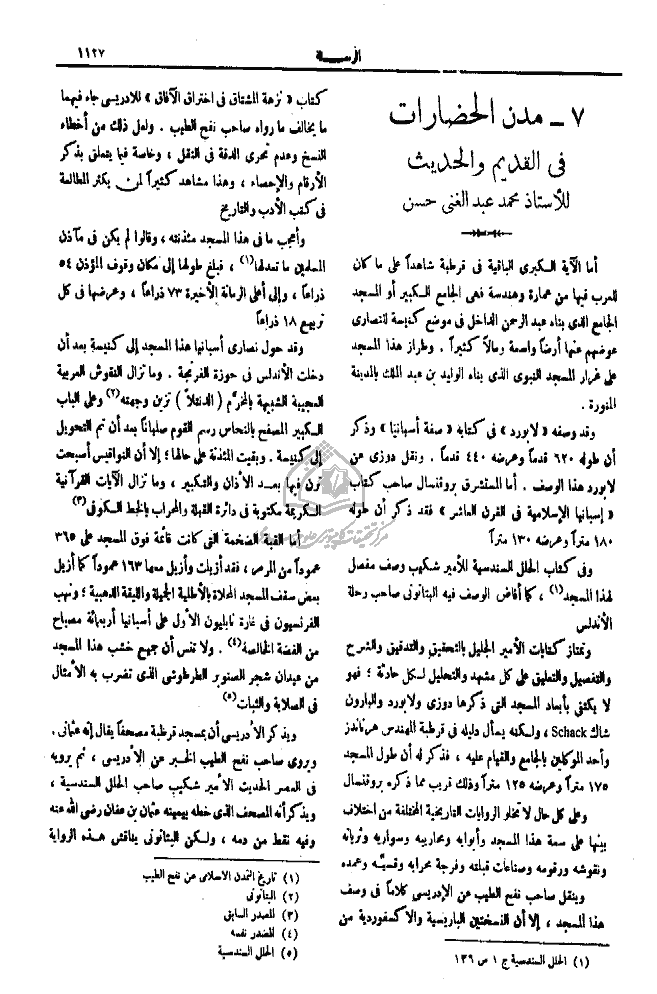 الرسالة
١١٢٧
٧ ـ مدن الحضارات
فى القديم والحديث
للأستاذ محمد عبد الغنى حسن
أما الآية الكبرى الباقية فى قرطبة شاهداً على ما كان
للعرب فيها من عمارة وهندسة فهى الجامع الكبير أو المسجد
الجامع الذى بناه عبد الرحمن الداخل فى موضع كنيسة للنصارى
عوضهم عنها أرضاً واسعة ومالاً كثيراً . وطراز هذا المسجد
على غرار المسجد النبوى الذى بناه الوليد بن عبد الملك بالمدينة
المنورة .
وقد وصفه « لابورد » فى كتابه « صفة أسبانيا » وذكر
أن طوله ٦٢٠ قدماً وعرضه ٤٤٠ قدماً . ونقل دوزى عن
لابورد هذا الوصف . أما المستشرق بروفنسال صاحب كتاب
« إسبانيا الإسلامية فى القرن العاشر » فقد ذكر أن طوله
١٨٠ متراً وعرضه ١٣٠ متراً
وفى كتاب الحلل السندسية للأمير شكيب وصف مفصل
لهذا المسجد (١) ، كما أفاض الوصف فيه البتانونى صاحب رحلة
الأندلس
وتمتاز كتابات الأمير الجليل بالتحقيق والتدقيق والشرح
والتفصيل والتعليق على كل مشهد والتحليل لكل حادثة ؛ فهو
لا يكتفى بأبعاد المسجد التى ذكرها دوزى ولابورد والبارون
شاك Schack ، ولكنه يسأل دليله فى قرطبة المهندس هرناندز
وأحد الموكلين بالجامع والقيام عليه ، فذكر له أن طول المسجد
١٧٥ متراً وعرضه ١٢٥ متراً وذلك قريب مما ذكره بروفنسال
وعلى كل حال لا تخلو الروايات التاريخية المختلفة من اختلاف
بينها على سعة هذا المسجد وأبوابه ومحاريبه وسواريه وثرياته
ونقوشه ورقومه وصناعات قبلته وفرجة محرابه وقسيه وعمده
وينقل صاحب نفح الطيب عن الإدريسى كلاماً فى وصف
هذا المسجد ، إلا أن النسختين الباريسية والاكسفوردية من
(١) الحلل السندسية ج ١ ص ١٣٩
كتاب « نزهة المشتاق فى اختراق الآفاق » للادريسى جاء فيهما
ما يخالف ما رواه صاحب نفح الطيب . ولعل ذلك من أخطاء
النسخ وعدم تحرى الدقة فى النقل ، وخاصة فيما يتعلق بذكر
الأرقام والإحصاء ، وهذا مشاهد كثيراً لمن يكثر المطالعة
فى كتب الأدب والتاريخ
وأعجب ما فى هذا المسجد مئذنته ، وقالوا لم يكن فى مآذن
المسلمين ما تعدلها (١) ، فبلغ طولها إلى مكان وقوف المؤذن ٥٤
ذراعاً ، وإلى أعلى الرمانة الأخيرة ٧٣ ذراعاً ، وعرضها فى كل
تربيع ١٨ ذراعاً
وقد حول نصارى أسبانيا هذا المسجد إلى كنيسة بعد أن
دخلت الأندلس فى حوزة الفرنجة . وما تزال النقوش العربية
العجيبة الشبيهة بالمخرَّم ( الدنتلا ) تزين وجهته (٢) وعلى الباب
الكبير المصفح بالنحاس رسم القوم صلباناً بعد أن تم التحويل
إلى كنيسة . وبقيت المئذنة على حالها ؛ إلا أن النواقيس أصبحت
ترن فيها بعد الأذان والتكبير ، وما تزال الآيات القرآنية
الكريمة مكتوبة فى دائرة القبلة والمحراب بالخط الكوفى (٣)
أما القبة الضخمة التى كانت قائمة فوق المسجد على ٣٦٥
عموداً من المرمر ، فقد أزيلت وأزيل معها ١٦٣ عموداً كما أزيل
بعض سقف المسجد المحلاة بالأطلية الجميلة والليقة الذهبية ؛ ونهب
الفرنسيون فى غارة نابليون الأول على أسبانيا أربعمائة مصباح
من الفضة الخالصة (٤) . ولا تنس أن جميع خشب هذا المسجد
من عيدان شجر الصنوبر الطرطوشى الذى تضرب به الأمثال
فى الصلابة والثبات (٥)
ويذكر الأدريسى أن بمسجد قرطبة مصحفاً يقال إنه عثمانى .
ويروى صاحب نفح الطيب الخبر عن الأدريسى ، ثم يرويه
فى العصر الحديث الأمير شكيب صاحب الحلل السندسية ،
ويذكر أنه المصحف الذى خطه بيمينه عثمان بن عفان رضى الله عنه
وفيه نقط من دمه ، ولكن البتانونى يناقش هذه الرواية
(١) تاريخ التمدن الاسلامى عن نفح الطيب
(٢) البتانونى
(٣) المصدر السابق
(٤) المصدر نفسه
(٥) الحلل السندسية